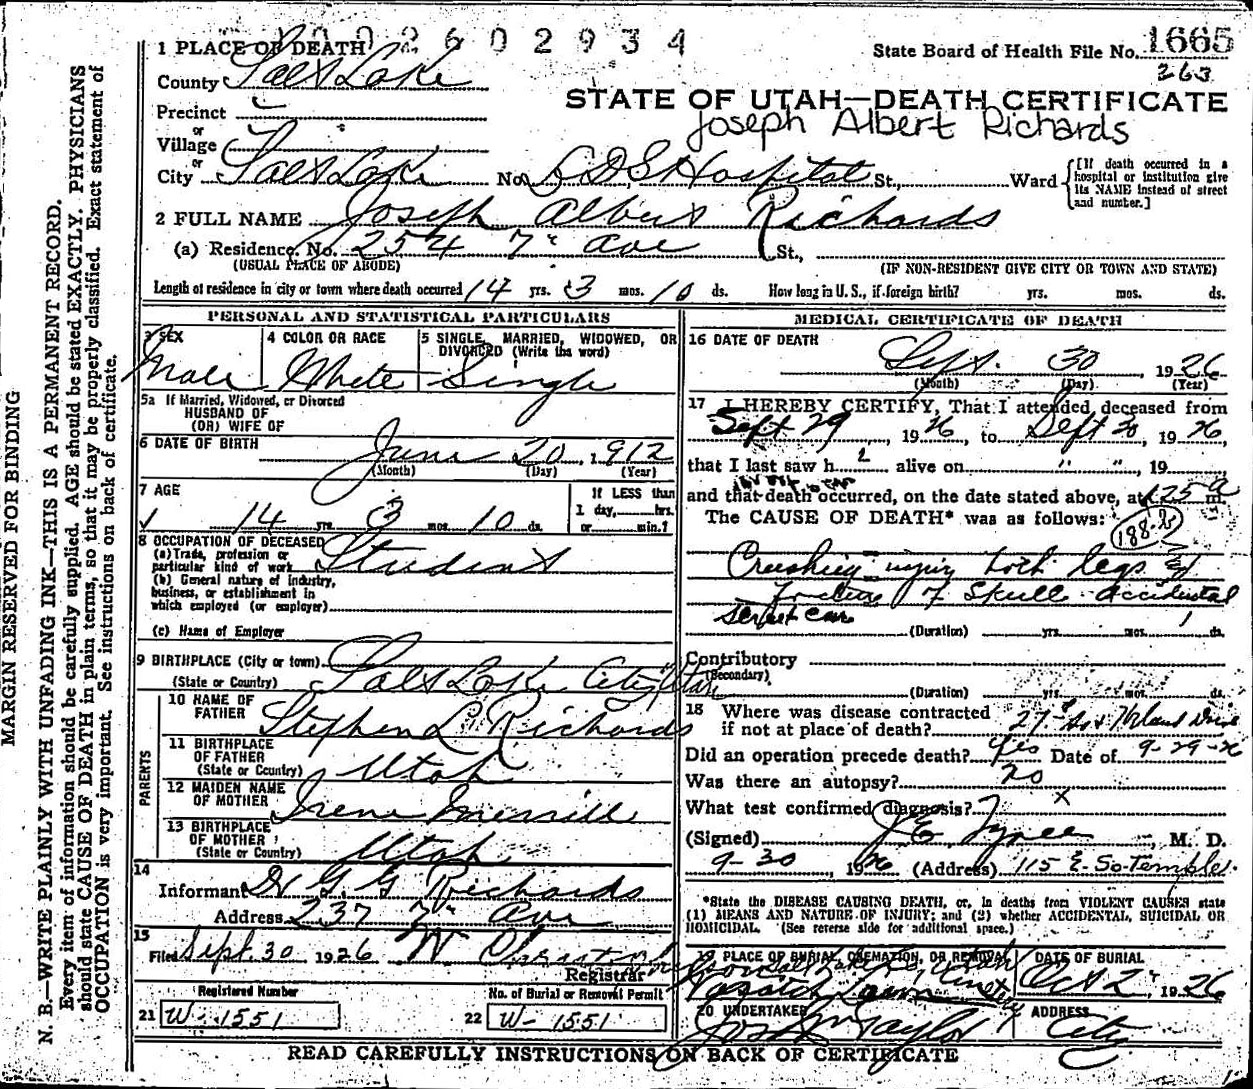 0 0 2 6 0 2 9 3 4
1 PLACE OF DEATH
State Board of Health File No. 1665
263
County Salt Lake
STATE OF UTAH—DEATH CERTIFICATE
Precinct
Joseph Albert Richards
or
Village
or
City Salt Lake No. L D S Hospital St., Ward
[If death occurred in a hospital or institution give its NAME instead of street and number.]
2 FULL NAME Joseph Albert Richards
(a) Residence. No. 254 7th Ave St.,
(USUAL PLACE OF ABODE) (IF NON-RESIDENT GIVE CITY OR TOWN AND STATE)
Length of residence in city or town where death occurred 14 yrs. 3 mos. 10 ds. How long in U. S., if foreign birth? yrs. mos. ds.
PERSONAL AND STATISTICAL PARTICULARS
3 SEX
Male
4 COLOR OR RACE
White
5 SINGLE, MARRIED, WIDOWED, OR DIVORCED (Write the word)
Single
5a If Married, Widowed, or Divorced
HUSBAND OF
(OR) WIFE OF
6 DATE OF BIRTH
June 20, 1912
(Month) (Day) (Year)
7 AGE
14 yrs. 3 mos. 10 ds.
If LESS than
1 day, hrs.
or min.?
8 OCCUPATION OF DECEASED
(a) Trade, profession or
particular kind of work Student
(b) General nature of industry,
business, or establishment in
which employed (or employer)
(c) Name of Employer
9 BIRTHPLACE (City or town)
(State or Country) Salt Lake City Utah
PARENTS
10 NAME OF
FATHER Stephen L Richards
11 BIRTHPLACE
OF FATHER
(State or Country) Utah
12 MAIDEN NAME
OF MOTHER Irene Merrill
13 BIRTHPLACE
OF MOTHER
(State or Country) Utah
14
Informant Dr G. G Richards
Address 237 7th Ave
15
Filed Sept. 30 1926 W
Registrar
Registered Number
21 W-1551
No. of Burial or Removal Permit
22 W-1551
MEDICAL CERTIFICATE OF DEATH
16 DATE OF DEATH
Sept. 30 1926
(Month) (Day) (Year)
17 I HEREBY CERTIFY, That I attended deceased from
Sept 29, 1926, to Sept 30, 1926
that I last saw h alive on " ", 19
and that death occurred, on the date stated above, at 125 a m.
The CAUSE OF DEATH* was as follows:
188-
Crushing injury both legs
Fracture of Skull - accidental
street car
(Duration) yrs. mos. 1 ds.
Contributory
(Secondary)
(Duration) yrs. mos. ds.
18 Where was disease contracted
if not at place of death? 27th So + Highland Drive
Did an operation precede death? yes Date of 9-29-26
Was there an autopsy? no
What test confirmed diagnosis? x
(Signed) J E Tyree, M. D.
9-30 1926 (Address) 115 E. So Temple.
*State the DISEASE CAUSING DEATH, or, in deaths from VIOLENT CAUSES state
(1) MEANS AND NATURE OF INJURY; and (2) whether ACCIDENTAL, SUICIDAL OR
HOMICIDAL. (See reverse side for additional space.)
19 PLACE OF BURIAL, CREMATION, OR REMOVAL
Wasatch Lawn Cemetery
DATE OF BURIAL
Oct 2, 1926
20 UNDERTAKER
Jos Wm Taylor
ADDRESS
City
READ CAREFULLY INSTRUCTIONS ON BACK OF CERTIFICATE
MARGIN RESERVED FOR BINDING
N. B.—WRITE PLAINLY WITH UNFADING INK—THIS IS A PERMANENT RECORD.
Every item of information should be carefully supplied. AGE should be stated EXACTLY. PHYSICIANS
should state CAUSE OF DEATH in plain terms, so that it may be properly classified. Exact statement of
OCCUPATION is very important. See instructions on back of certificate.